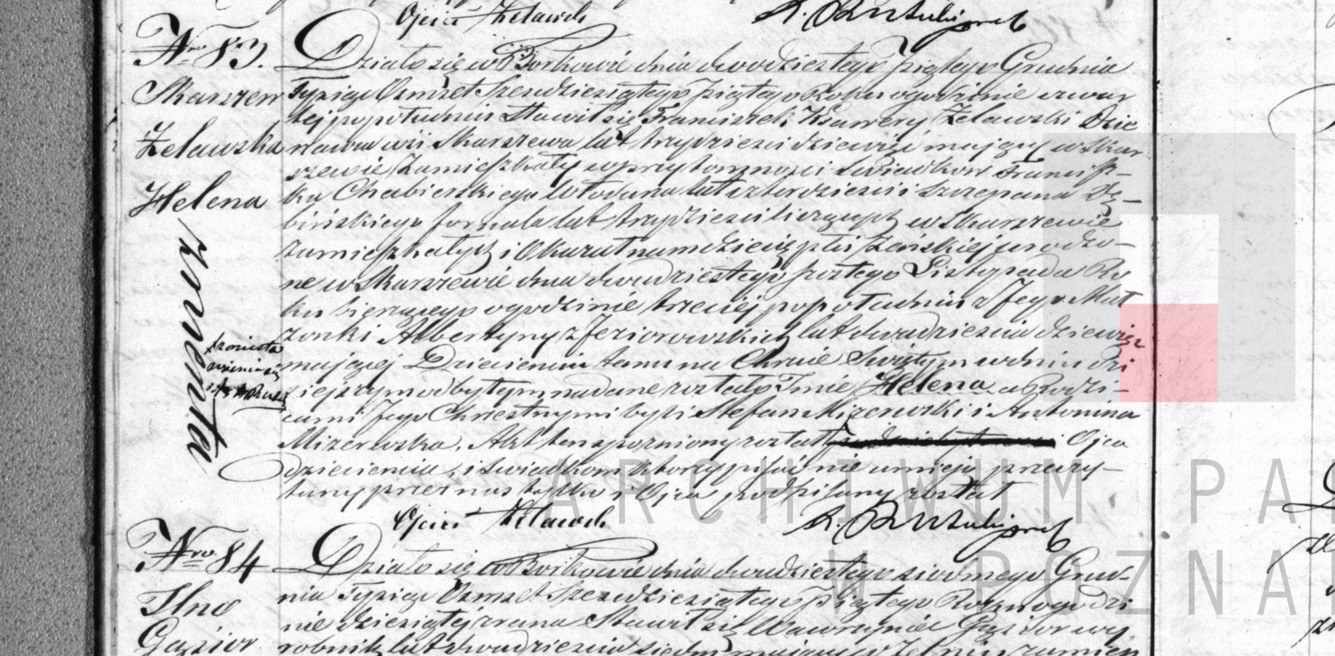 Ojciec Żelawski
Nro 83.
Skarszew
Żelawska
Helena
zmarła
Działo się w Borkowie dnia dwudziestego piątego Grudnia
Tysiąc Ośmset Sześdziesiątego piątego Roku o godzinie czwar
tej popołudniu Stawił się Franciszek Ksawery Żelawski Dzie
rżawca wsi Skarszewa lat trzydzieści dziewięć mający w Skar
szewie zamieszkały w przytomności świadków Francisz-
ka Chabierskiego Włodarza lat czterdzieści i Szczepana
bińskiego fornala lat trzydzieści liczących w Skarszewie
zamieszkałych i Okazał nam dziecię płci Żeńskiej urodzo-
ne w Skarszewie dnia dwudziestego szóstego Listopada Ro
ku bieżącego o godzinie trzeciej popołudniu z Jego Mał
żonki Albertyny z lat dwadzieścia dziewięć
mającej Dziecięciu temu na Chrzcie Świętym w dniu Dzi
siejszym odbytym nadane zostało Imie Helena a Rodzi-
cami Jego Chrzestnymi byli Stefan Mizerowski i Antonina
Mizerowska. Akt ten spóźniony został Ojca
dziecięcia, i świadkom którzy pisać nie umieją przeczy-
tany przez nas tylko i Ojca podpisany został
Ojciec Żelawski
Nro 84
Ilno
Gąsior
Działo się w Borkowie dnia dwudziestego siódmego Grud-
nia Tysiąc Ośmset Sześdziesiątego piątego Roku o godzi
nie dziesiątej zrana Stawił się Wawrzyniec Gąsior wy
robnik lat dwadzieścia siedm mający w Ilnie zamiesz
ARCHIWUM PA
W POZNA